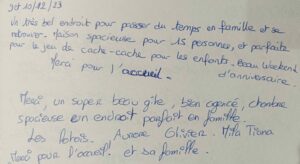 10/12/23
Un très bel endroit pour passer du temps en famille et se
retrouver. Maison spacieuse pour 15 personnes, et parfaite
pour le jeu de cache-cache pour les enfants. Beau weekend
Merci pour l'accueil. d'anniversaire.
Merci, un super beau gîte, bien agencé, chambre
spacieuse un endroit parfait en famille.
Les Aurore Olivier. Mila Tiana
Merci pour l'accueil. et sa famille.